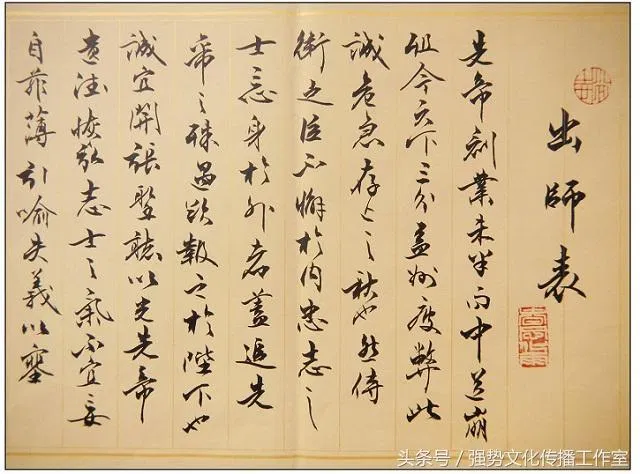 出師表
先帝創業未半而中道崩
殂今天下三分益州疲弊此
誠危急存亡之秋也然侍
衛之臣不懈於内忠志之
士忘身於外者蓋追先
帝之殊遇欲報之於陛下也
誠宜開張聖聽以光先帝
遺德恢弘志士之氣不宜妄
自菲薄引喻失義以塞
头条号／强势文化传播工作室